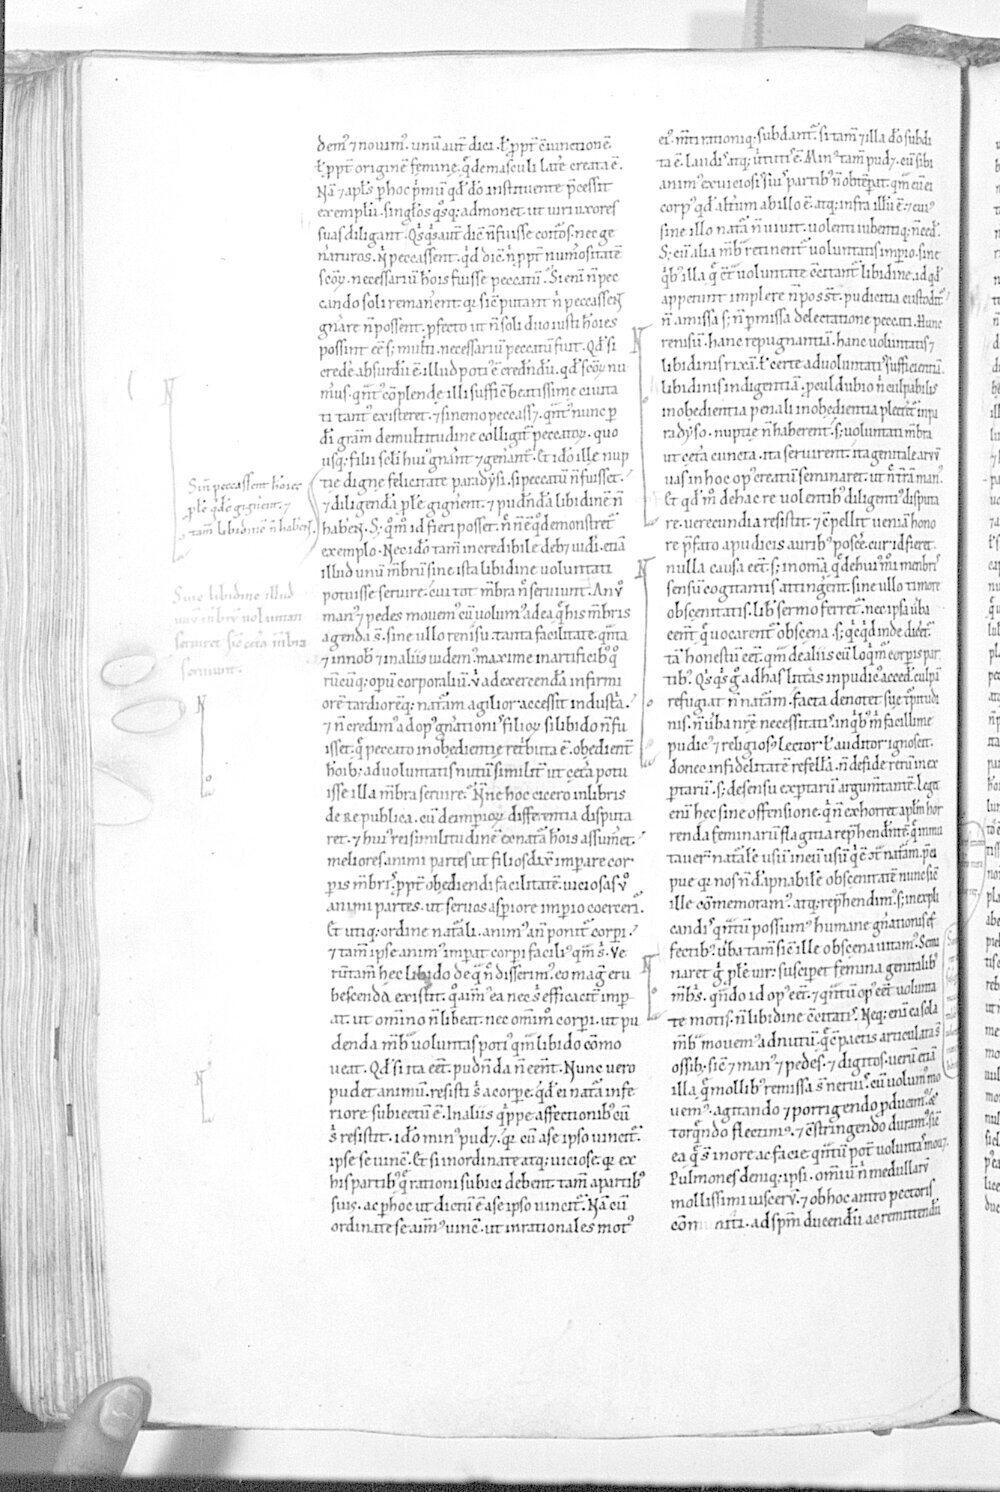 demꝰ ⁊ nouimꝰ. unū aut̄ dici. ł ꝓpt̄ c̄iunctionē.
ł ꝓpt̄ originē femine. q̄ de masculi latere creata ē.
Nā ⁊ apl̄s ꝑ hoc p̄mū qd̄ dō instituente p̄cessit
exemplū. singlos q̄sq; admonet ut uiri uxores
suas diligant. Qs̄qs aut̄ dic̄ n̄ fuisse coitōs. nec ge
n̄aturos. n̄ peccassent. qd̄ dic̄ n̄ ꝓpt̄ numositatē
scōꝝ. necessariū hōis fuisse peccatū. Si eni n̄ pec
cando soli remanēnt. q̄ sic̄ putant n̄ peccassent
gn̄are n̄ possent. ꝓfecto ut n̄ soli duo iusti hōies
possint eē s; multi. necessariū peccatū fuit. Qd̄ si
credē absurdū ē. illud potiꝰ ē credn̄dū. qd̄ scōꝝ nu
m̄us. qn̄tꝰ cōplende illi suffic̄ beatissime ciuita
ti tantꝰ existeret. ⁊ si nemo peccasset. qn̄tꝰ nunc ꝑ
dī grām de multitudine colligit̄ peccatoꝝ. quo
usq; filii sc̄li huiꝰ gn̄ant ⁊ gen̄ant̄. Et idō ille nup
tie digne felicitate paradysi. si peccatū n̄ fuisset.
⁊ diligendā ꝓlē gign̄ent. ⁊ pudn̄dā libidinē n̄
haberent. S; qm̄o id fieri posset. n̄c n̄ ē q̄ demonstret̄
exemplo. Nec idō tam̄ incredibile debet uidi. etiā
illud unū mb̄rū sine ista libidine uoluntati
potuisse seruire. cui tot mb̄ra n̄c seruiunt. An ū
manꝰ ⁊ pedes mouemꝰ cū uolumꝰ ad ea q̄ his mb̄ris
agenda s̄. sine ullo renisu. tanta facilitate. qn̄ta
⁊ in nobꝰ ⁊ in aliis uidemꝰ. maxime in artificibꝰ q̄
rūcūq; opū corporaliū. ubi ad exercendā infirmi
orē tardiorēq; natām agilior accessit industria.
⁊ n̄ credimꝰ ad opꝰ gn̄ationiꝰ filioꝝ si libido n̄ fu
isset. q̄ peccato inobedientie retbuta ē. obedient̄
hōib; ad uoluntatis nutū similit̄ ut cet̄a potu
isse illa mb̄ra seruire. Nn̄e hoc cicero in libris
de Republica. cū de impioꝝ differentia disputa
ret. ⁊ huiꝰ rei similitudinē ex natā hōis assumet̄.
meliores animi partes ut filios dix̄ imperare cor
ꝑis mb̄ris. ꝓpt̄ obediendi facilitatē. uiciosas ū
animi partes. ut seruos aspiore impio coercerī.
Et utiq; ordine natāli. animꝰ an̄ponit̄ corꝑi.
⁊ tam̄ ipse animꝰ imꝑat corꝑi faciliꝰ qm̄ s̄. Ve
rūtam̄ hec libido de q̄ n̄c disserimꝰ. eo maḡ eru
bescenda existit. q̄ aimꝰ ea nec s̄ efficacit̄ imꝑ
at. ut omino n̄ libeat. nec omim̄o corꝑi. ut pu
denda mb̄a uoluntas potiꝰ qm̄ libido cōmo
ueat. Qd̄ si ita eēt. pudn̄da n̄ eēnt. Nunc uero
pudet animū. resisti s̄ a corpe. qd̄ ei natā infe
riore subiectū ē. In aliis q̄ppe affectionibꝰ cū
s̄ resistit. idō minꝰ pudet. q̄ cū a se ipso uincit̄.
ipse se uinc̄. Et si inordinate atq; uiciose. q̄ ex
his partibꝰ q̄ rationi subici debent. tam̄ a partibꝰ
suis. ac ꝑ hoc ut dictū ē a se ipso uincit̄. Nā cū
ordinate se aim̄ꝰ uinc̄. ut irrationales motꝰ
eiꝰ. m̄ti rationiq; subdant̄. si tam̄ ⁊ illa dō subdi
ta ē. laudis atq; ūtutis ē. Minꝰ tam̄ pudet. cū sibi
animꝰ ex uiciosis suis partibꝰ n̄ obtēꝑat. qm̄ cū ei
corpꝰ qd̄ altm̄ ab illo ē. atq; infra illū ē. ⁊ cuiꝰ
sine illo natā n̄ uiuit. uolenti iubentiq; n̄ cedꝰ.
S; cū alia mb̄a retinent̄ uoluntatis impio. sine
q̄bꝰ illa q̄ c̄t̄ uoluntatē c̄citant̄ libidine. id qd̄
appetunt implere n̄ posst̄. pudicitia custodit̄
n̄ amissa s; n̄ pmissa delectatione peccati. Hunc
renisū. hanc repugnantiā. hanc uoluntatis ⁊
libidinis rixā. ł certe ad uoluntatiꝰ sufficientiā.
libidinis indigentiā. ꝓcul dubio n̄ culpabilis
inobedientia penali inobedientia plectret̄. in pa
radyso. nuptie n̄ haberent. s; uoluntati mb̄ra
ut cet̄a cuncta. ita seruirent. ita genitale aruū
uas in hoc opꝰ creatū seminaret. ut n̄c t̄rā manꝰ.
Et qd̄ m̄o de hac re uolentibꝰ diligentiꝰ disputa
re. uerecundia resistit. ⁊ c̄pellit ueniā hono
re p̄fato a pudicis auribꝰ poscē. cur id fieret.
nulla causa eēt. s; in omīa q̄ de huiꝰm̄i menbris
sensū cogitantis attingent̄. sine ullo timore
obscenitatis. libꝰ sermo ferret̄. nec ipsa ūba
eēnt q̄ uocarent̄ obscena. s; q̄cqd̄ inde dicet̄.
tā honestū eēt. qm̄ de aliis cū loqm̄r corꝑis par
tibꝰ. Qs̄qs g̊ ad has litt̄as inpudicꝰ accedit. culpā
refugiat n̄ natām. facta denotet sue t̄pitudi
nis. n̄ ūba nr̄e necessitatis. in qb̄ꝰ m̄ facillime
pudicꝰ ⁊ religiosꝰ lector ł auditor ignoscit.
donec infidelitatē refellā. n̄ de fide rerū inex
ꝑtarū. s; de sensu exꝑtarū argum̄tantē. Legit
eni hec sine offensione. q̄ n̄ exhorret aplm̄ hor
renda feminarū flagitia rephendn̄tē. q̄ imma
tauer̄ natālē usū in eū usū q̄ ē c̄t̄ natām. p̄ci
pue q̄ nos n̄ dāpnabilē obscenitatē nunc sic̄
ille cōmemoramꝰ. atq; rephendimꝰ. s; in expli
candis qn̄tū possumꝰ humane gn̄ationis ef
fectibꝰ. ūba tam̄ sic̄ ille obscena uitamꝰ. Semi
naret g̊ ꝓlē uir. susciꝑet femina genitalibꝰ
mb̄s. qn̄do id opꝰ eēt. ⁊ qn̄tū opꝰ eēt uolunta
te motis. n̄ libidine c̄citatis. Neq; eni ea sola
mb̄a mouemꝰ ad nutū. q̄ c̄pactis articulata s̄
ossibꝰ. sic̄ ⁊ manꝰ ⁊ pedes. ⁊ digitos. uerū etiā
illa q̄ mollibꝰ remissa s̄ neruis. cū uolumꝰ mo
uemꝰ. agitando ⁊ porrigendo ꝓducimꝰ. ⁊
torqn̄do flectimꝰ. ⁊ c̄stringendo duramꝰ. sic̄
ea q̄ s̄ in ore ac facie. qn̄tū pot̄ uoluntas mouet.
Pulmones deniq; ipsi. omiū n̄ medullarū
mollissimi uiscerū. ⁊ ob hoc antro pectoris
cōmuniti. ad spm̄ ducendū ac remittendū
Si n̄ peccassent hōies
ꝓlē qd̄e gignent. ⁊
tam̄ libidinē n̄ haberent.
Sine libidine illud
unū mb̄rū voluntati
seruiret sic̄ cetera mb̄ra
seruiunt.